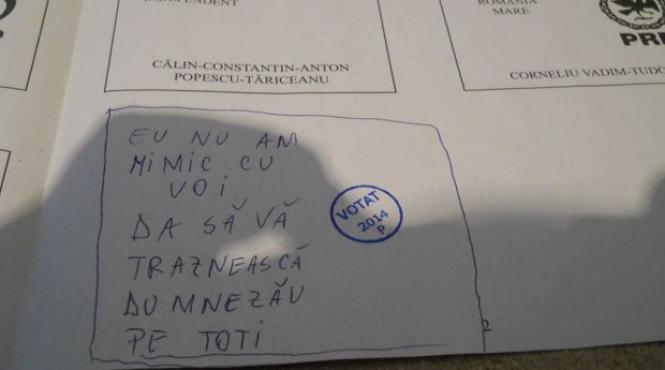 INDEPENDENT
CĂLIN-CONSTANTIN-ANTON
POPESCU-TĂRICEANU
ROMÂNIA
MARE
PR
CORNELIU VADIM-TUDO
EU NU AM
MIMIC CU
VOI
DA SĂ VĂ
TRAZNEASCĂ
DUMNEZĂU
PE TOTI
VOTAT
2014
P
2